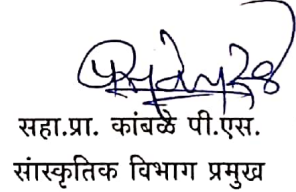 सहा.प्रा. कांबळे पी.एस.
सांस्कृतिक विभाग प्रमुख